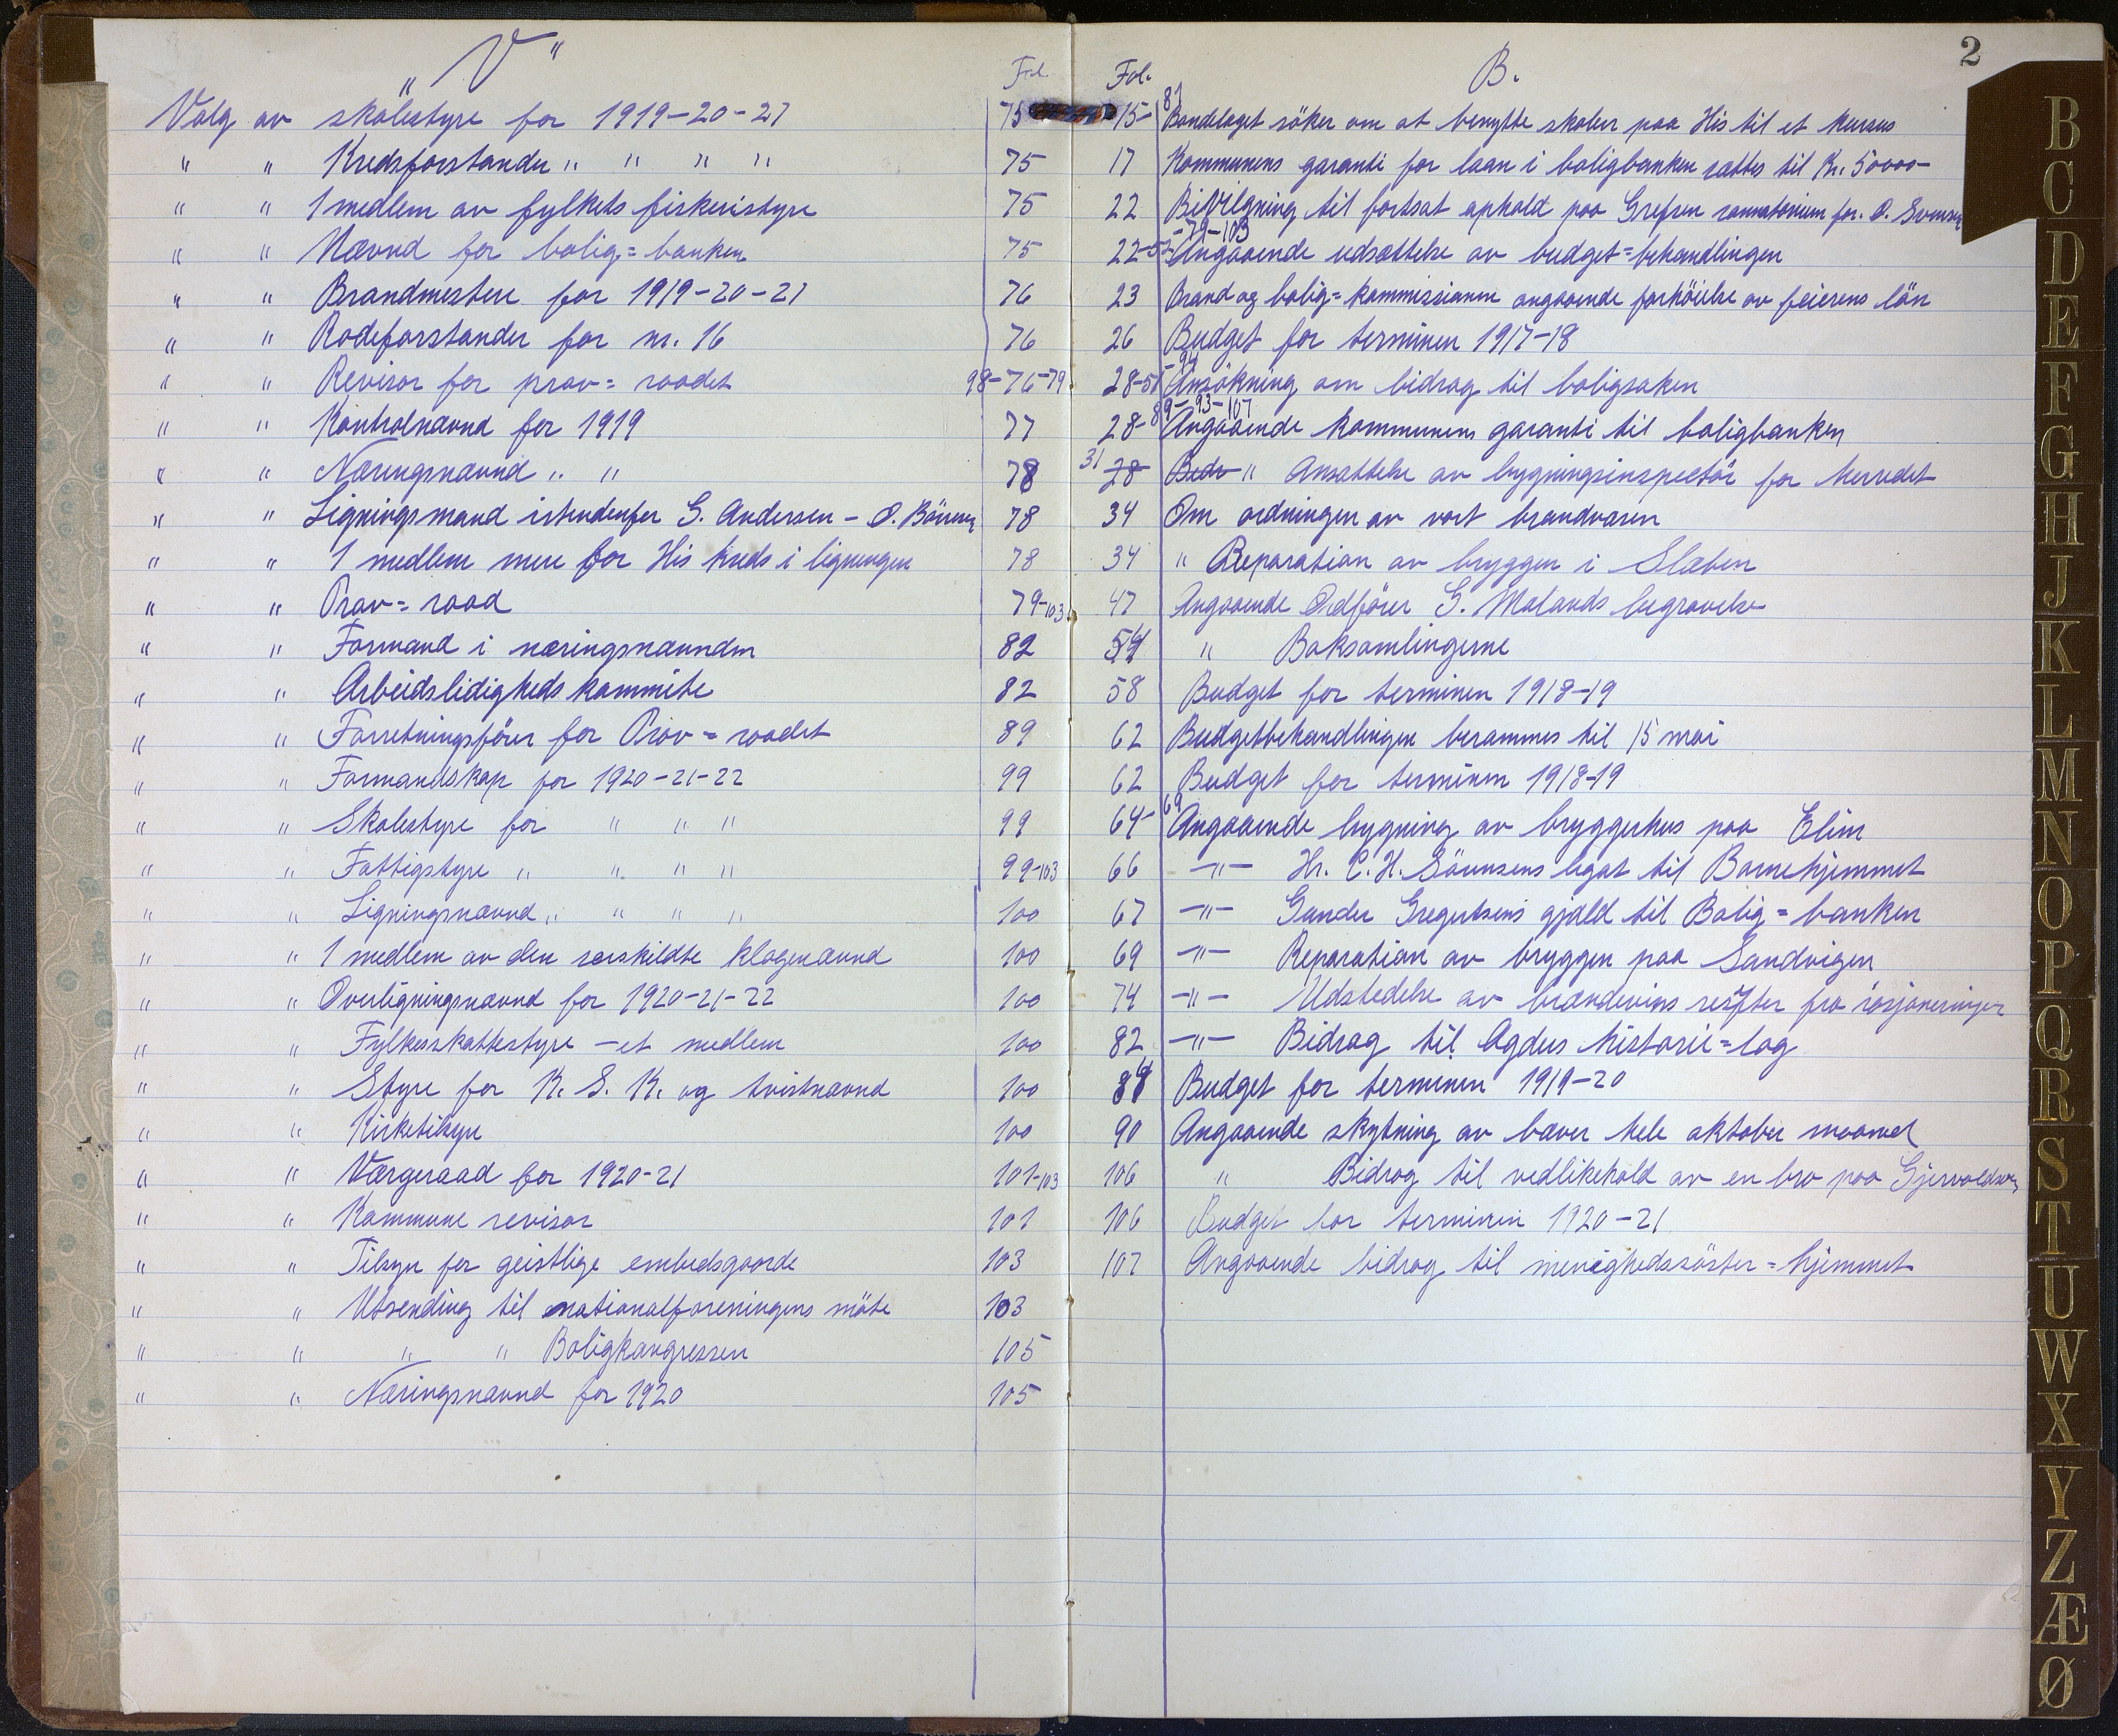 „ V “
Fol.
Valg av skolestyre for 1919-20-21 75
" " Kredsforstander " " " " 75
" " 1 medlem av fylkets fiskeristyre 75
" " Nævnd for bolig=banken 75
" " Brandmestere for 1919-20-21 76
" " Rodeforstander for nr. 16 76
" " Revisor for prov=raadet 98-76-79
" " Kontrolnævnd for 1919 77
" " Næringsnævnd " " 78
" " Ligningsmand istendenfor G. Andersen - O. 78
" " 1 medlem mere for His kreds i ligningen 78
" " Prov=raad 79-103
" " Formand i næringsnævnden 82
" " Arbeidslidigheds kommite 82
" " Forretningsförer for Prov=raadet 89
" " Formandskap for 1920-21-22 99
" " Skolestyre for " " " 99
" " Fattigstyre " " " " 99-103
" " Ligningsnævnd " " " " 100
" " 1 medlem av den særskildte klagenævnd 100
" " Overligningsnævnd for 1920-21-22 100
" " Fylkesskattestyre - et medlem 100
" " Styre for K. S. K. og tvistnævnd 100
" " Kirketilsyn 100
" " Værgeraad for 1920-21 101-103
" " Kommune revisor 101
" " Tilsyn for geistlige embedsgaarde 103
" " Utsending til nationalforeningens möte 103
" " " " Boligkongressen 105
" " Næringsnævnd for 1920 105
2
Fol. B.
15-81 Bondelaget söker om at benytte skolen paa His til et kursus
17 Kommunens garanti for laan i boligbanken sættes til Kr. 50000-
22 Bevilgning til fortsat ophold paa Grefsen sanatorium for O. Svensen
22-52-79-103 Angaaende udsættelse av budget=behandlingen
23 Brand og bolig=kommissionen angaaende forhöielse av feierens lön
26 Budget for terminen 1917-18
28-51-94 Ansökning om bidrag til boligsaken
28-89-93-107 Angaaende kommunens garanti til boligbanken
31 28 " Ansættelse av bygningsinspectör for herredet
34 Om ordningen av vort brandvæsen
34 " Reparation av bryggen i Slæben
47 Angaaende Ordförer G. Malands begravelse
54 " Boksamlingerne
58 Budget for terminen 1918-19
62 Budgetbehandlingen berammes til 15 mai
62 Budget for terminen 1918-19
64-69 Angaaende bygning av bryggerhus paa Elim
66 -"- Hr. C. H. Sörensens legat til Barnehjemmet
67 -"- Gunder Gregertsens gjæld til Bolig=banken
69 -"- Reparation av bryggen paa Sandvigen
74 -"- Udstedelse av brændevins resepter fra rasjoneringen
82 -"- Bidrag til Agders historie=lag
84 Budget for terminen 1919-20
90 Angaaende skytning av bæver hele oktober maaned
106 " Bidrag til vedlikehold av en bro paa Gjervoldsøy
106 Budget for terminen 1920-21
107 Angaaende bidrag til menighedssöster=hjemmet
B
C
D
E
F
G
H
J
K
L
M
N
O
P
Q
R
S
T
U
W
X
Y
Z
Æ
Ø